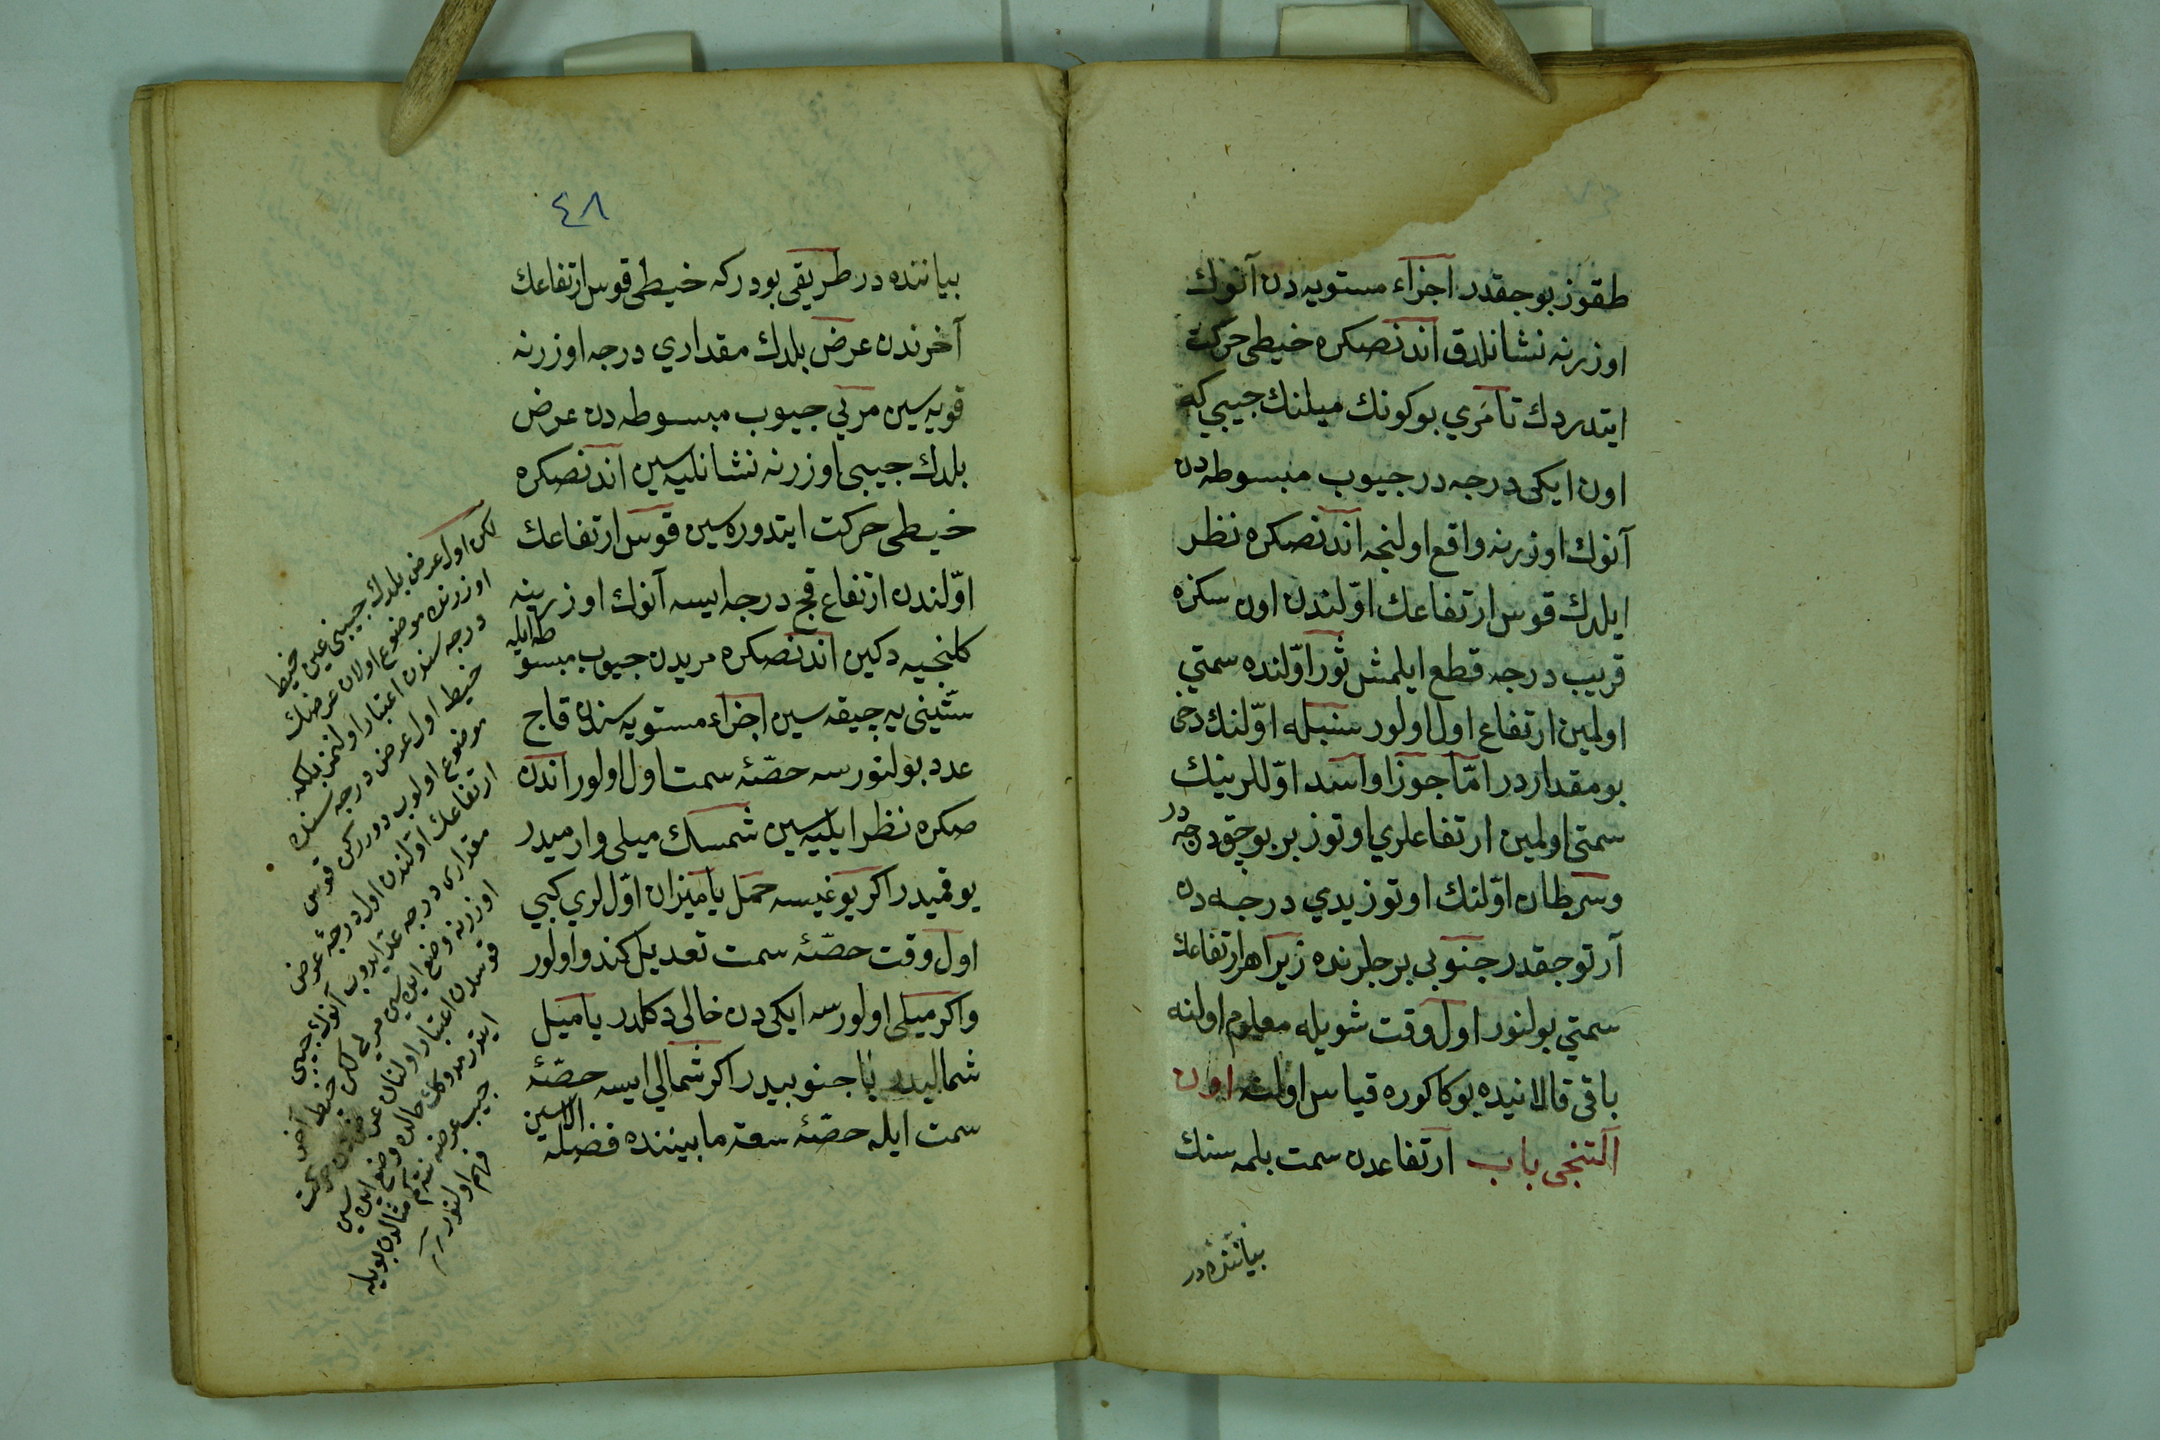 طقوز بوجقدر اجزاء مستويه دن آنوك
اوزرنه نشانلدق اندنصكره خيطى حركت
ايتدردك تا مري بو كونك ميلنك جيبي كه
اون ايكى درجه در جيوب مبسوطه دن
آنوك اوزرنه واقع اولنجه اندنصكره نظر
ايلدك قوس ارتفاعك اوّلندن اون سكزه
قريب درجه قطع ايلمش ثور اوّلنده سمتي
اولمين ارتفاع اول اولور سنبله اوّلنك دخى
بو مقدار در امّا جوزا و اسد اوّللرينك
سمتى اولمين ارتفاعلري اوتوز بر بوچق درجه در
وسرطان اوّلنك اوتوز يدي درجه دن
آرتوجقدر جنوبى برجلرنده زيرا هر ارتفاعك
سمتي بولنور اول وقت شويله معلوم اولنه
باقى قالانيده بوكا كوره قياس اولنه اون
آلتنجى باب ارتفاعدن سمت بلمه سنك
بياننده در
٤٨
بياننده در طريقى بودركه خيطى قوس ارتفاعك
آخرندن عرض بلدك مقداري درجه اوزرنه
قويه سين مري جيوب مبسوطه دن عرض
بلدك جيبى اوزرنه نشانليه سين اندنصكره
خيطى حركت ايتدوره سين قوس ارتفاعك
اوّلندن ارتفاع قچ درجه ايسه آنوك اوزرينه
كلنجيه دكين اندنصكره مريدن جيوب مبسوطه ايله
ستّينى يه چيقه سين اجزاء مستويه سندن قاچ
عدد بولنورسه حصّۀ سمت اول اولور اندن
صكره نظر ايليه سين شمسك ميلى وار ميدر
يوقميدر اكر يوغيسه حمل يا ميزان اوّللري كبي
اول وقت حصّۀ سمت تعديل كندو اولور
واكر ميلى اولورسه ايكى دن خالى دكلدر يا ميل
شماليدر يا جنوبيدر اكر شمالي ايسه حصّۀ
سمت ايله حصّۀ سعة مابيننده فضله الاسين
لكن اول عرض بلدك جيبى عين خيط
اوزرنده موضوع اولان عرضنك
درجه سندن اعتبار اولنمز بلكه
خيط اول عرض درجه سنده
موضوع اولوب دوررکن قوس
ارتفاعك اوّلندن اول درجۀ عرض
مقدارى درجه عدّ ايدوب آنوك جيبى
اوزرنه وضع ايده سين مرى لكن خيط آخر
قوسدن اعتبار اولنان عرضدن حركت
ايتدرمدوكك حالده وضع ايده سين
جيب عرضه نته كم مثالده بويله
فهم اولنور